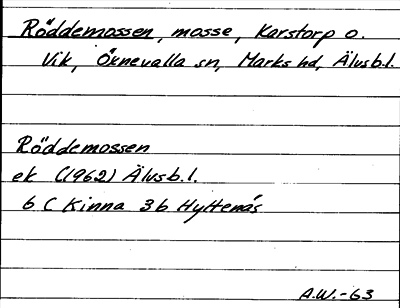 Röddemossen, mosse, Karstorp o.
Vik, Öxnevalla sn, Marks hd, Älvsb.l.
Röddemossen
ek (1962) Älvsb.l.
6 C Kinna 3b Hyltenäs
A.W.-63